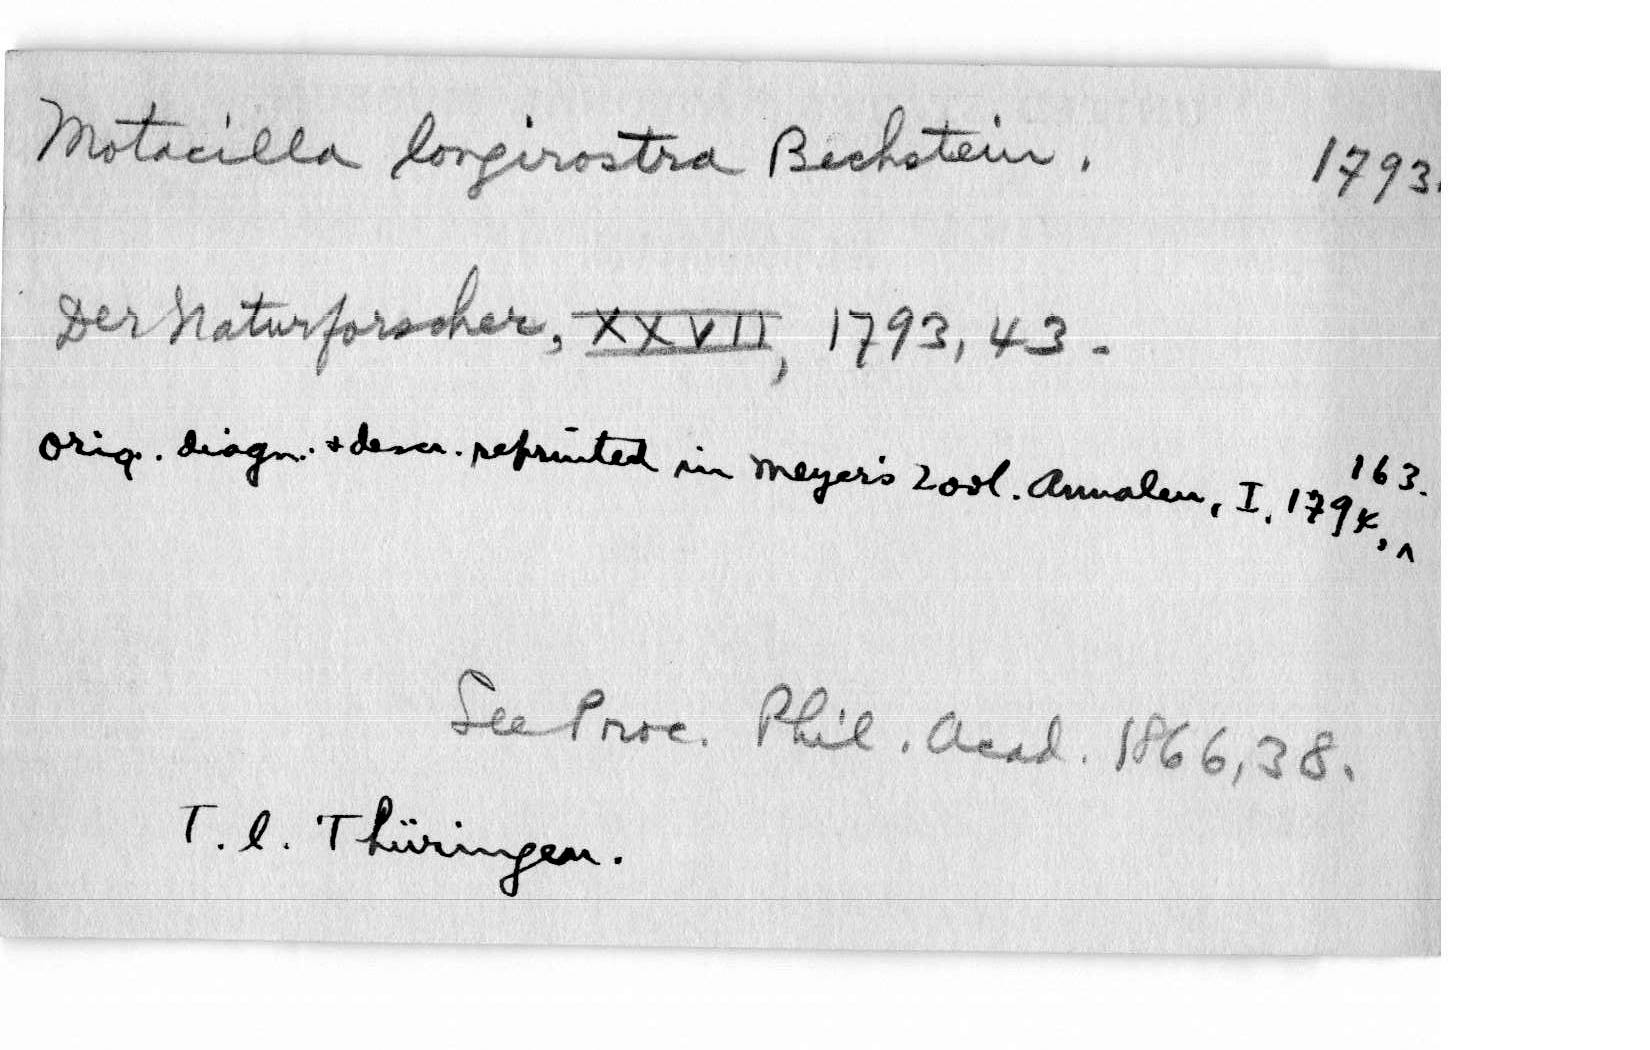 Motacilla longirostra Bechstein. 1793.
Der Naturforscher, XXVII, 1793, 43.
Orig. diagn. + descr. reprinted in Meyer's Zool. Annalen, I, 1794, ^ 163.
See Proc. Phil. Acad. 1866, 38.
T. l. Thüringen.